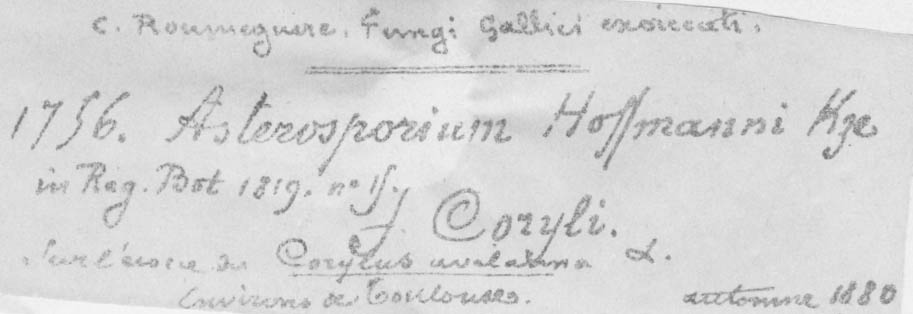 C. Roumeguere. Fungi Gallici exsiccati.
1756. Asterosporium Hoffmanni Kze
in Rag. Bot 1819. no 15.
f Coryli.
Sur l'écorce du Corylus avelanna L.
Environs de Toulouse. automne 1880